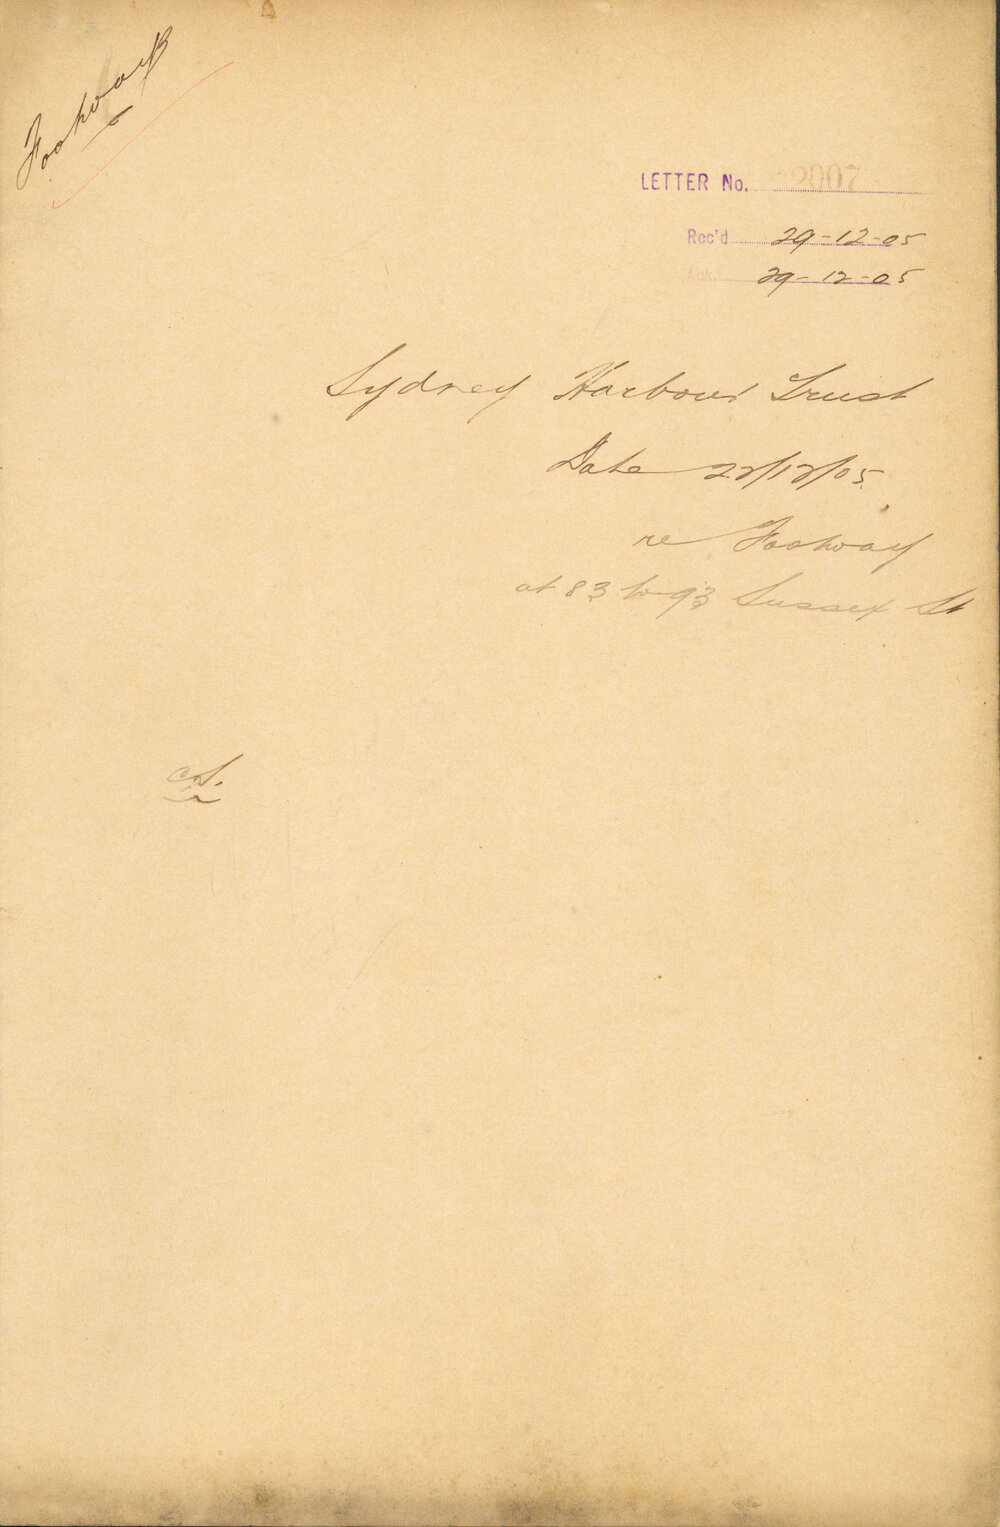 Footways
LETTER No. 2007
Rec'd 29-12-05
Ack. 29-12-05
Sydney Harbour Trust
Date 22/12/05
re Footway
at 83 to 93 Sussex St